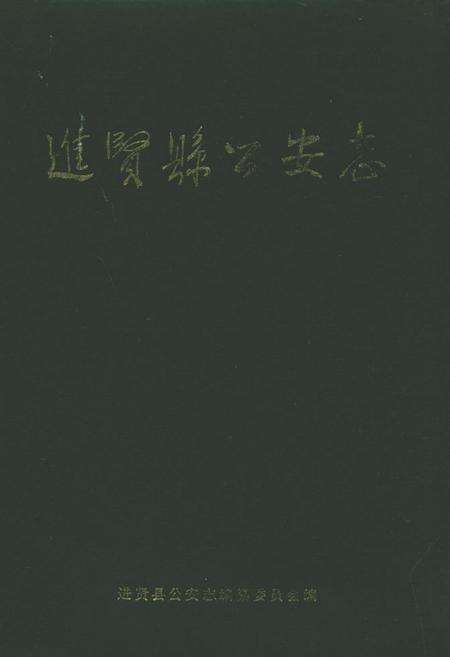 進賢縣公安志
进贤县公安志编纂委员会编